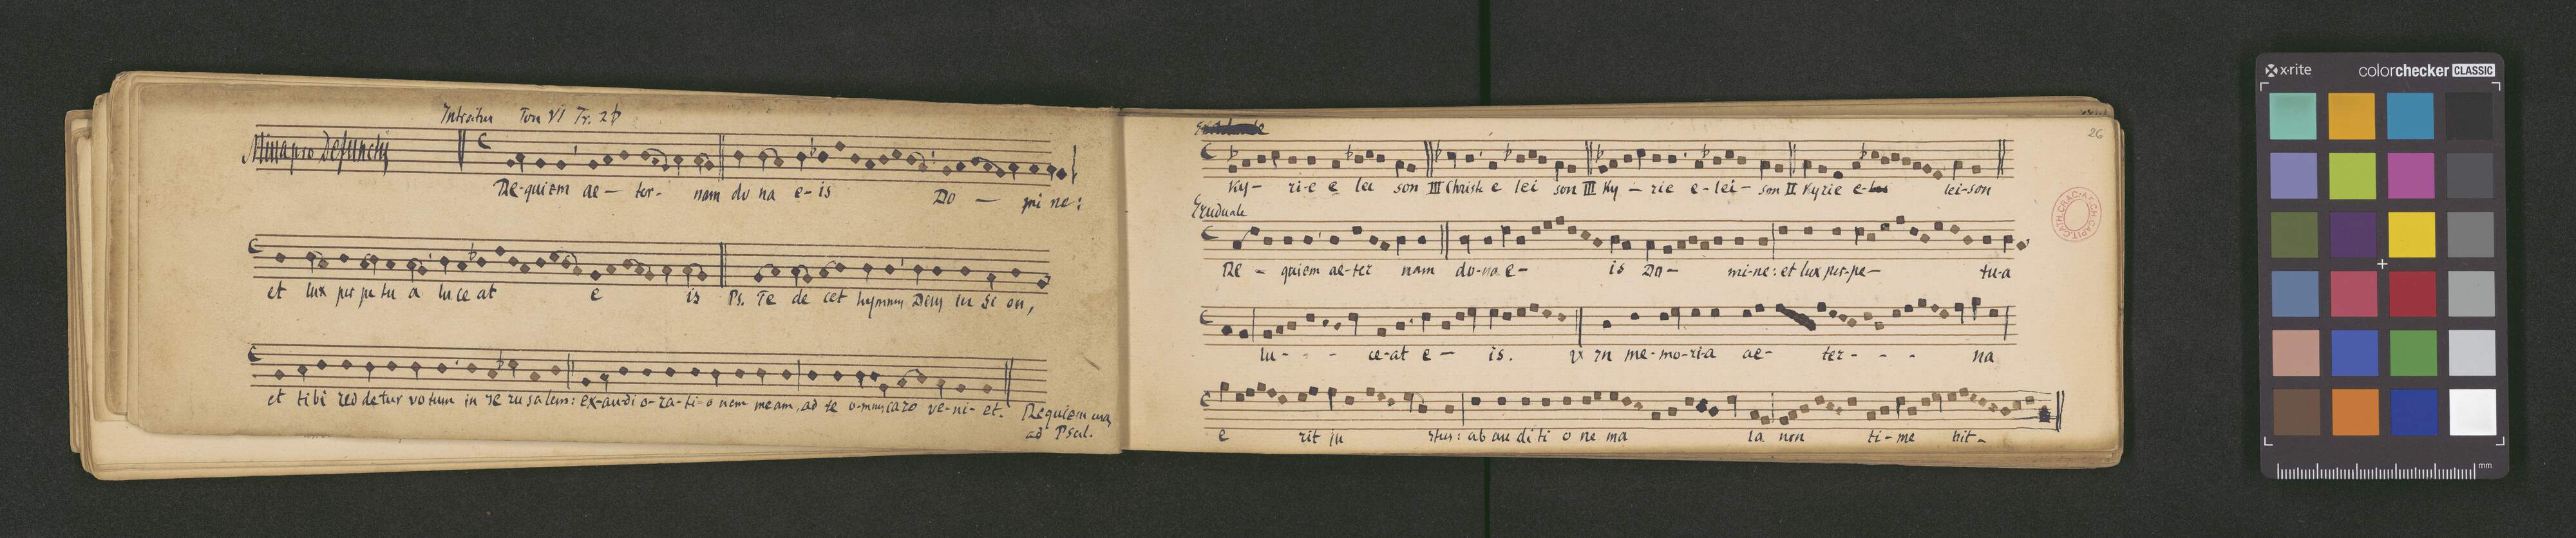 Introitus Ton VI Tr. 2b
Missa pro Defunctis
Re-quiem ae- ter- nam do na e-is Do - mi ne:
et lux per pe tu a lu ce at e is Ps. Te de cet hymnus Deus in Si on,
et tibi red detur votum in Je ru salem: ex-au-di o-ra-ti-o nem meam, ad te o-mnis caro ve-ni-et. Requiem
ad Psal.
26
Ky- ri-e e lei son III Christe e lei son III Ky - rie e-lei- son II Kyrie e- lei-son
Graduale
Re - quiem ae-ter nam do-na e- is Do- mi-ne: et lux per-pe- tu-a
lu- - - ce-at e- is. In me-mo-ri-a ae- ter- - - na
e rit ju stus: ab au di ti o ne ma la non ti-me bit-
x-rite colorchecker CLASSIC
mm